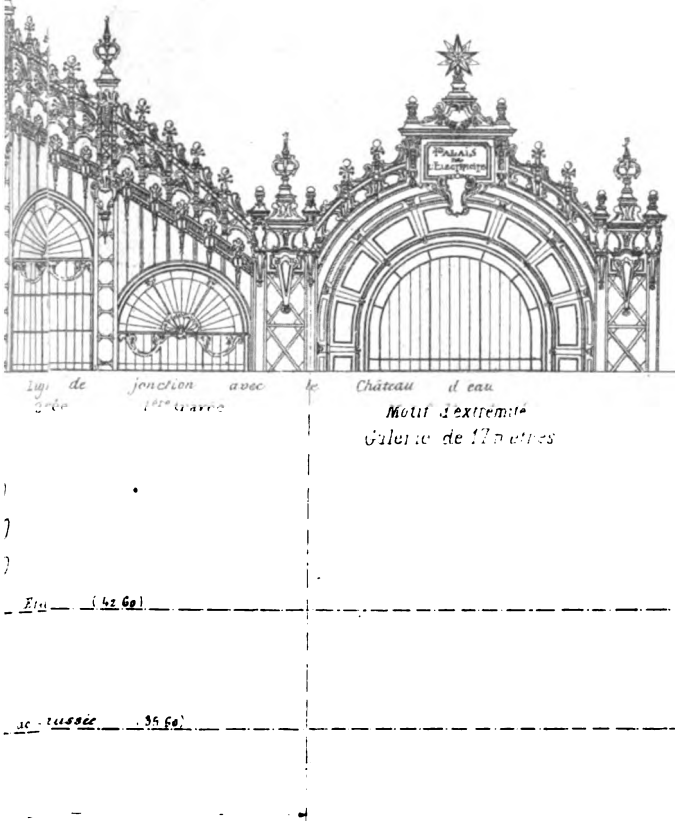 PALAIS
DE
L'ELECTRICITE
de jonction avec le Château d'eau
1ère travée
Motif d'extrémité
Galerie de 17 mètres
(42.60)
(35.60)